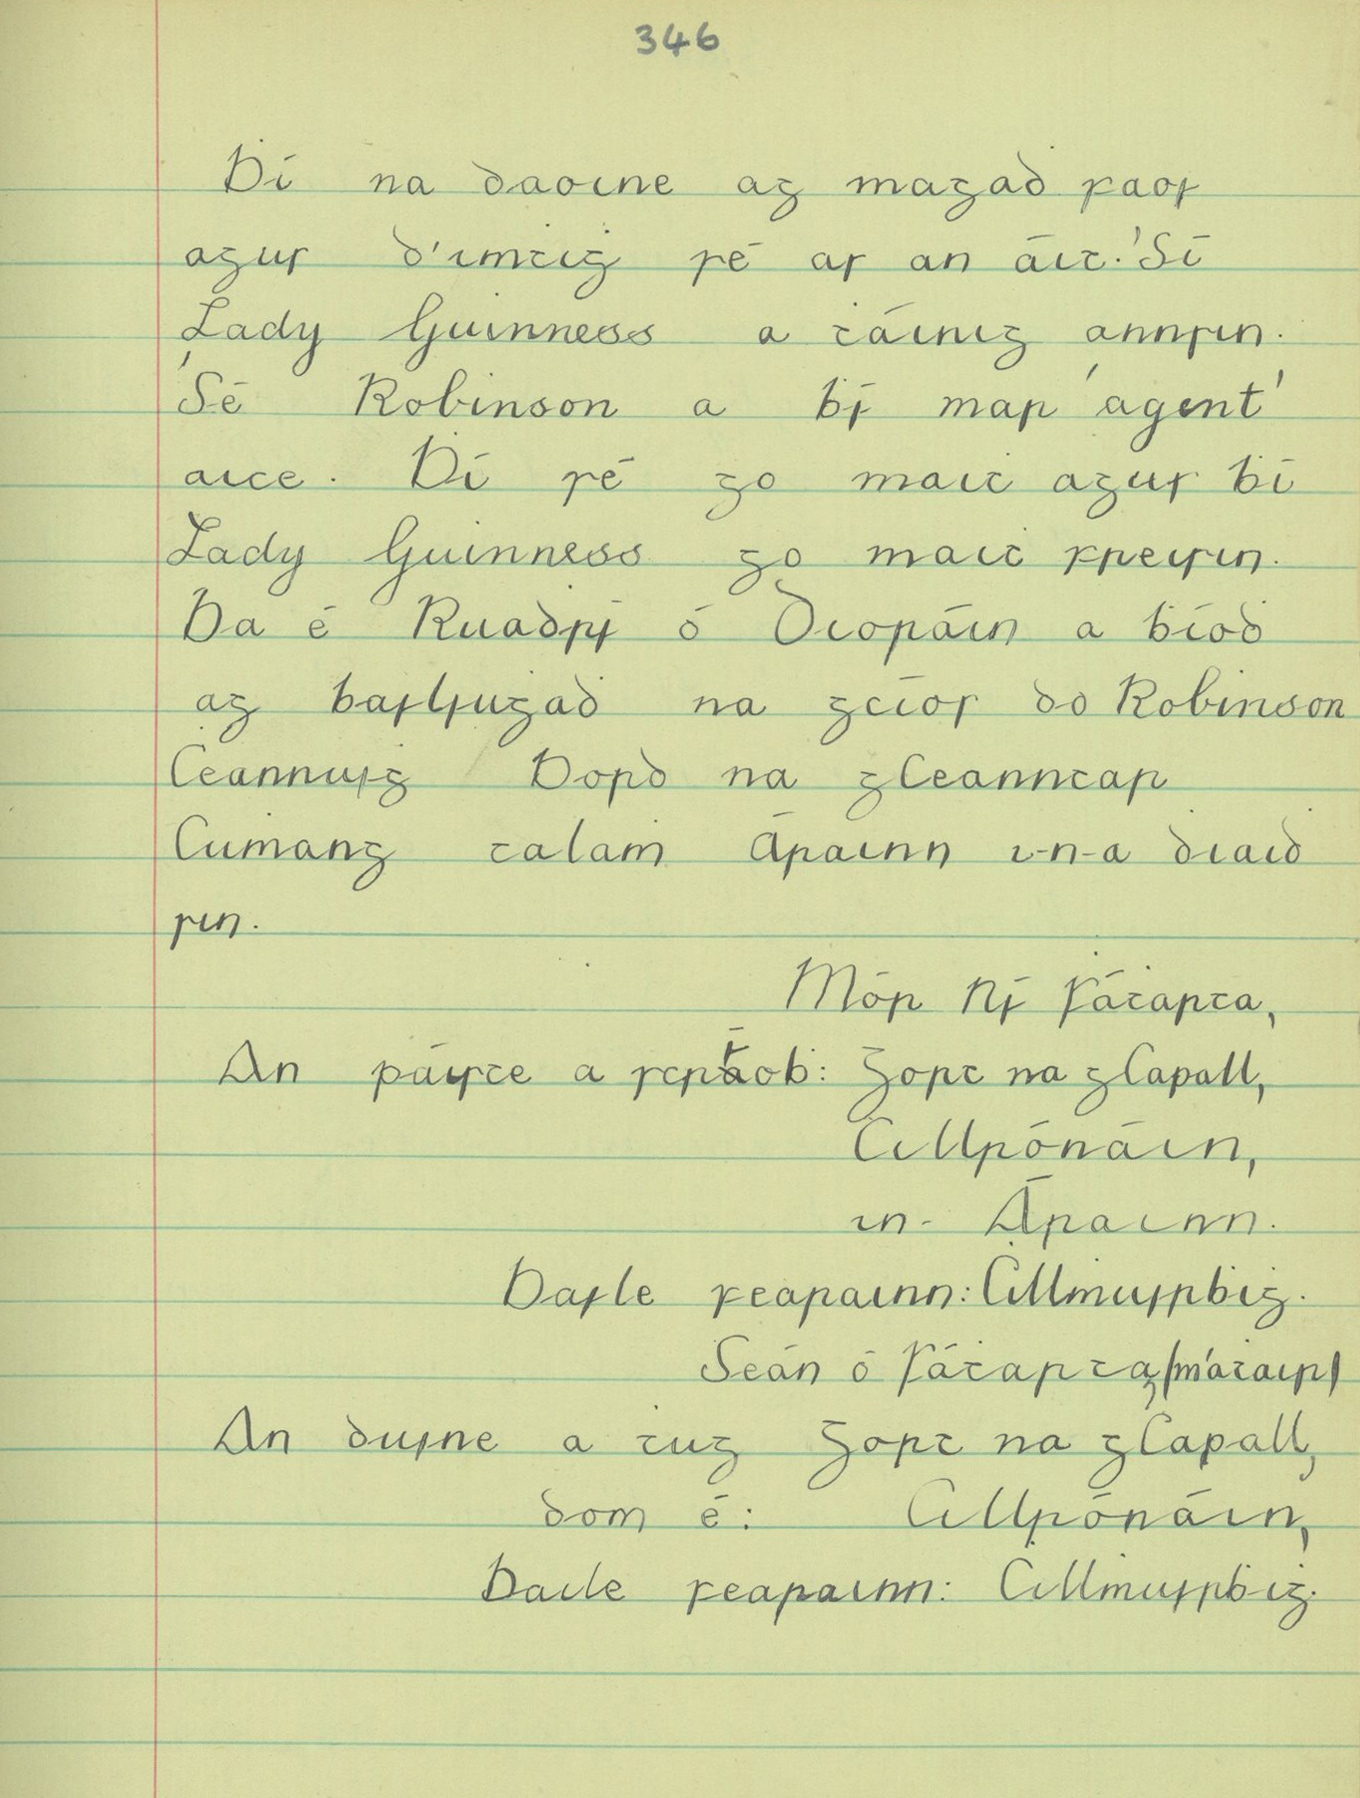 346
Ḃí na daoine ag magaḋ faoi
agus d'imṫig sé as an áit. 'Sí
Lady Guinness a ṫáinig annsin.
'Sé Robinson a ḃí mar 'agent'
aice. Ḃí sé go maiṫ agus ḃí
Lady Guinness go maiṫ freisin.
Ba é Ruaḋrí ó Dioráin a ḃíoḋ
ag bailiuġaḋ na gcíos do Robinson
Ċeannuiġ Bord na gCeanntar
Cumang talaṁ Árainn i-n-a ḋiaiḋ
sin.
Mór Ní Fáṫarta,
An páiste a scríoḃ: Gort na gCapall,
Cillrónáin,
in- Árainn.
Baile fearainn: Cillṁuirḃiġ.
Seán ó Fáṫarta, (m'aṫair)
An duine a ṫug Gort na gCapall,
dom é: Cillrónáin,
Baile fearainn: Cillṁuirḃiġ.